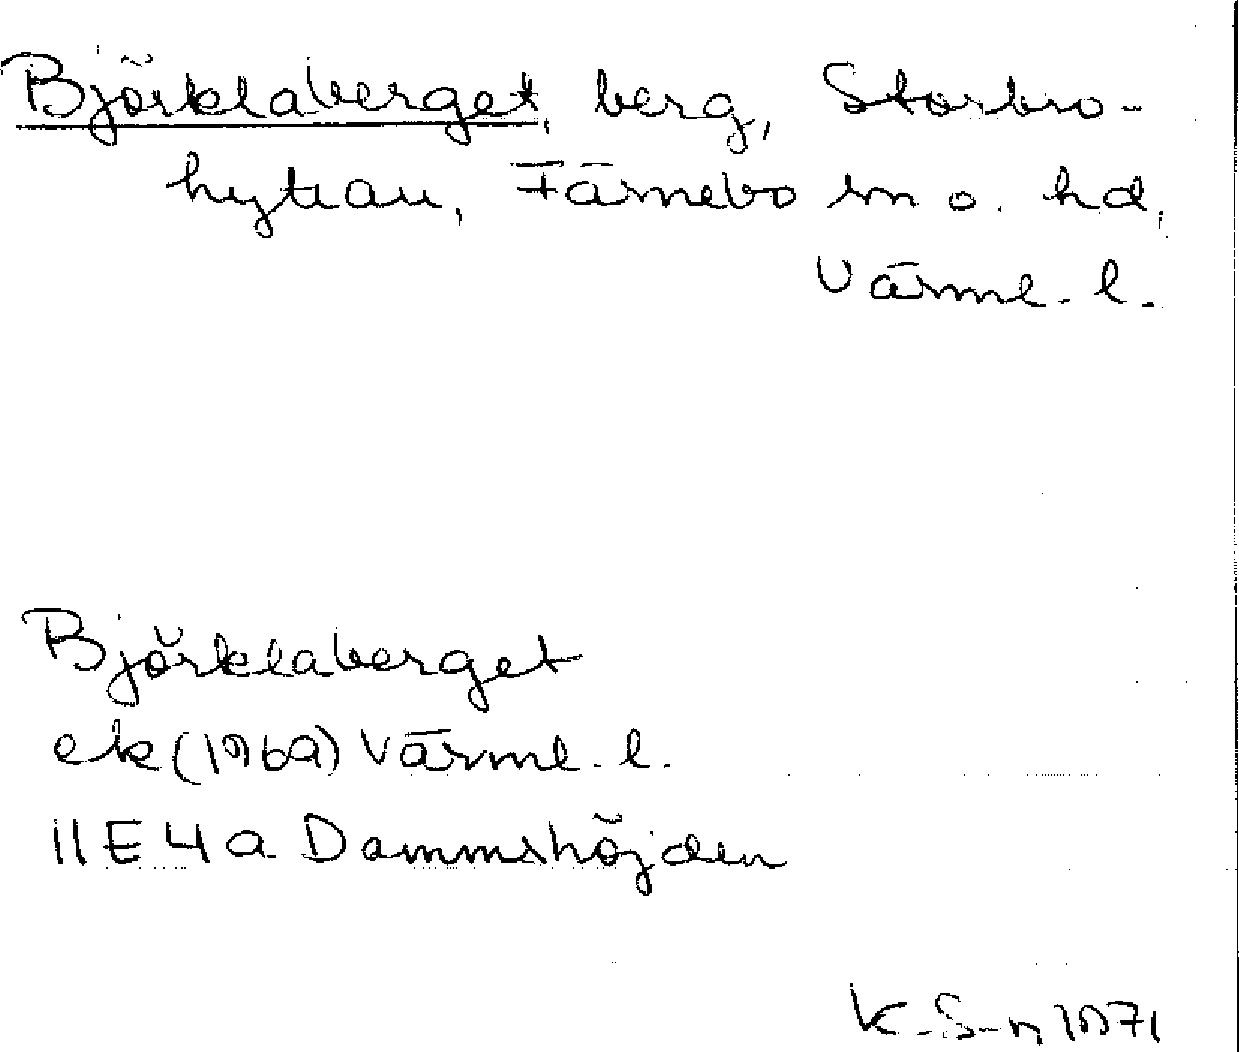 Björklaberget, berg, Storbro-
hyttan, Färnebo sn o. hd,
Värml. l.
Björklaberget
ek (1969) Värml. l.
11E 4a Dammshöjden
K. S-n 1971